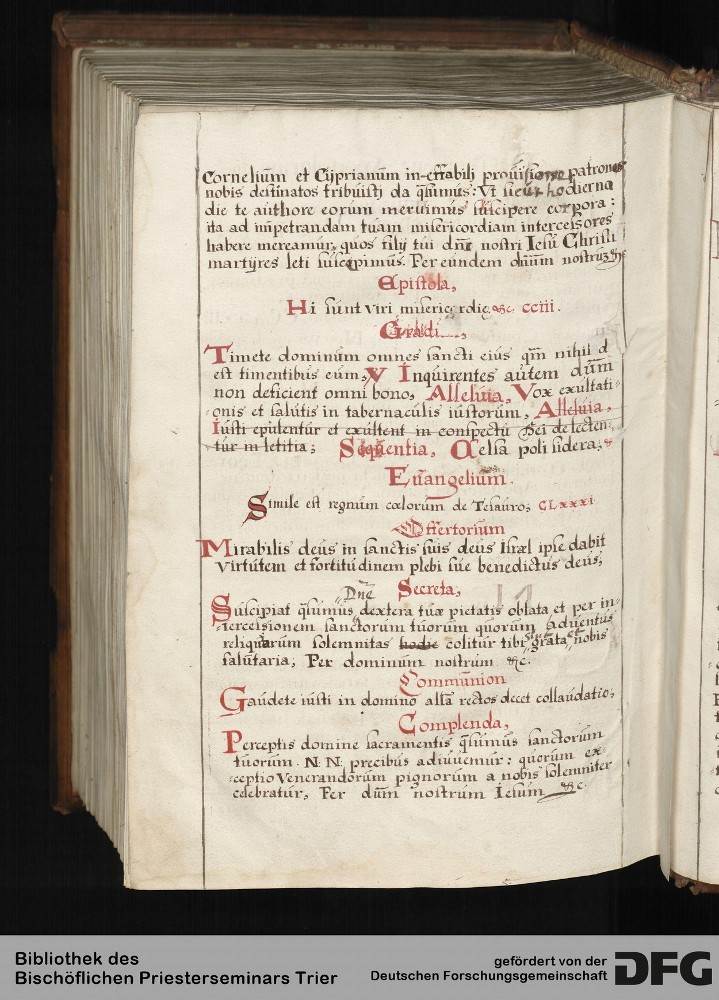 Cornelium et Cyprianum in-effabilj prouisione patronos
nobis destinatos tribuistj da q̄sumus: Vt sicut hodierna
die te authore eorum meruimus suscipere corpora:
ita ad impetrandam tuam misericordiam intercessores
habere mereamur, quos filij tui dn̄i nostri Iesu Christi
martyres leti suscepimus. Per eundem dnūm nostrum &c
Epistola,
Hi sunt viri misericordie, &c. cciii.
Gradi
Timete dominum omnes sancti eius qm̄ nihil d
est timentibus eum, V Inquirentes autem dūm
non deficient omni bono, Alleluia, Vox exultati-
-onis et salutis in tabernaculis iustorum, Alleluia,
Iusti epulentur et exultent in conspectu Dei delecten-
-tur in letitia; Sequentia, Celsa poli sidera; &
Euangelium.
Simile est regnum cœlorum de Tesauro; CLxxxi
Offertorium
Mirabilis deus in sanctis suis deus Israel ipse dabit
virtutem et fortitudinem plebi sue benedictus deus;
Secreta,
Dn̄e
Suscipiat q̄sumus dextera tuæ pietatis oblata et per in-
-tercessionem sanctorum tuorum quorum aduentus
reliquiarum solemnitas hodie colitur tibi sint grata et nobis
salutaria; Per dominum nostrum &c.
Communion
Gaudete iusti in domino allā rectos decet collaudatio;
Complenda,
Perceptis domine sacramentis q̄sumus sanctorum
tuorum . N. N. precibus adiuuemur: quorum ex-
-ceptio venerandorum pignorum a nobis solemniter
celebratur, Per dūm nostrum Iesum &c.
Bibliothek des
Bischöflichen Priesterseminars Trier
gefördert von der
Deutschen Forschungsgemeinschaft
DFG